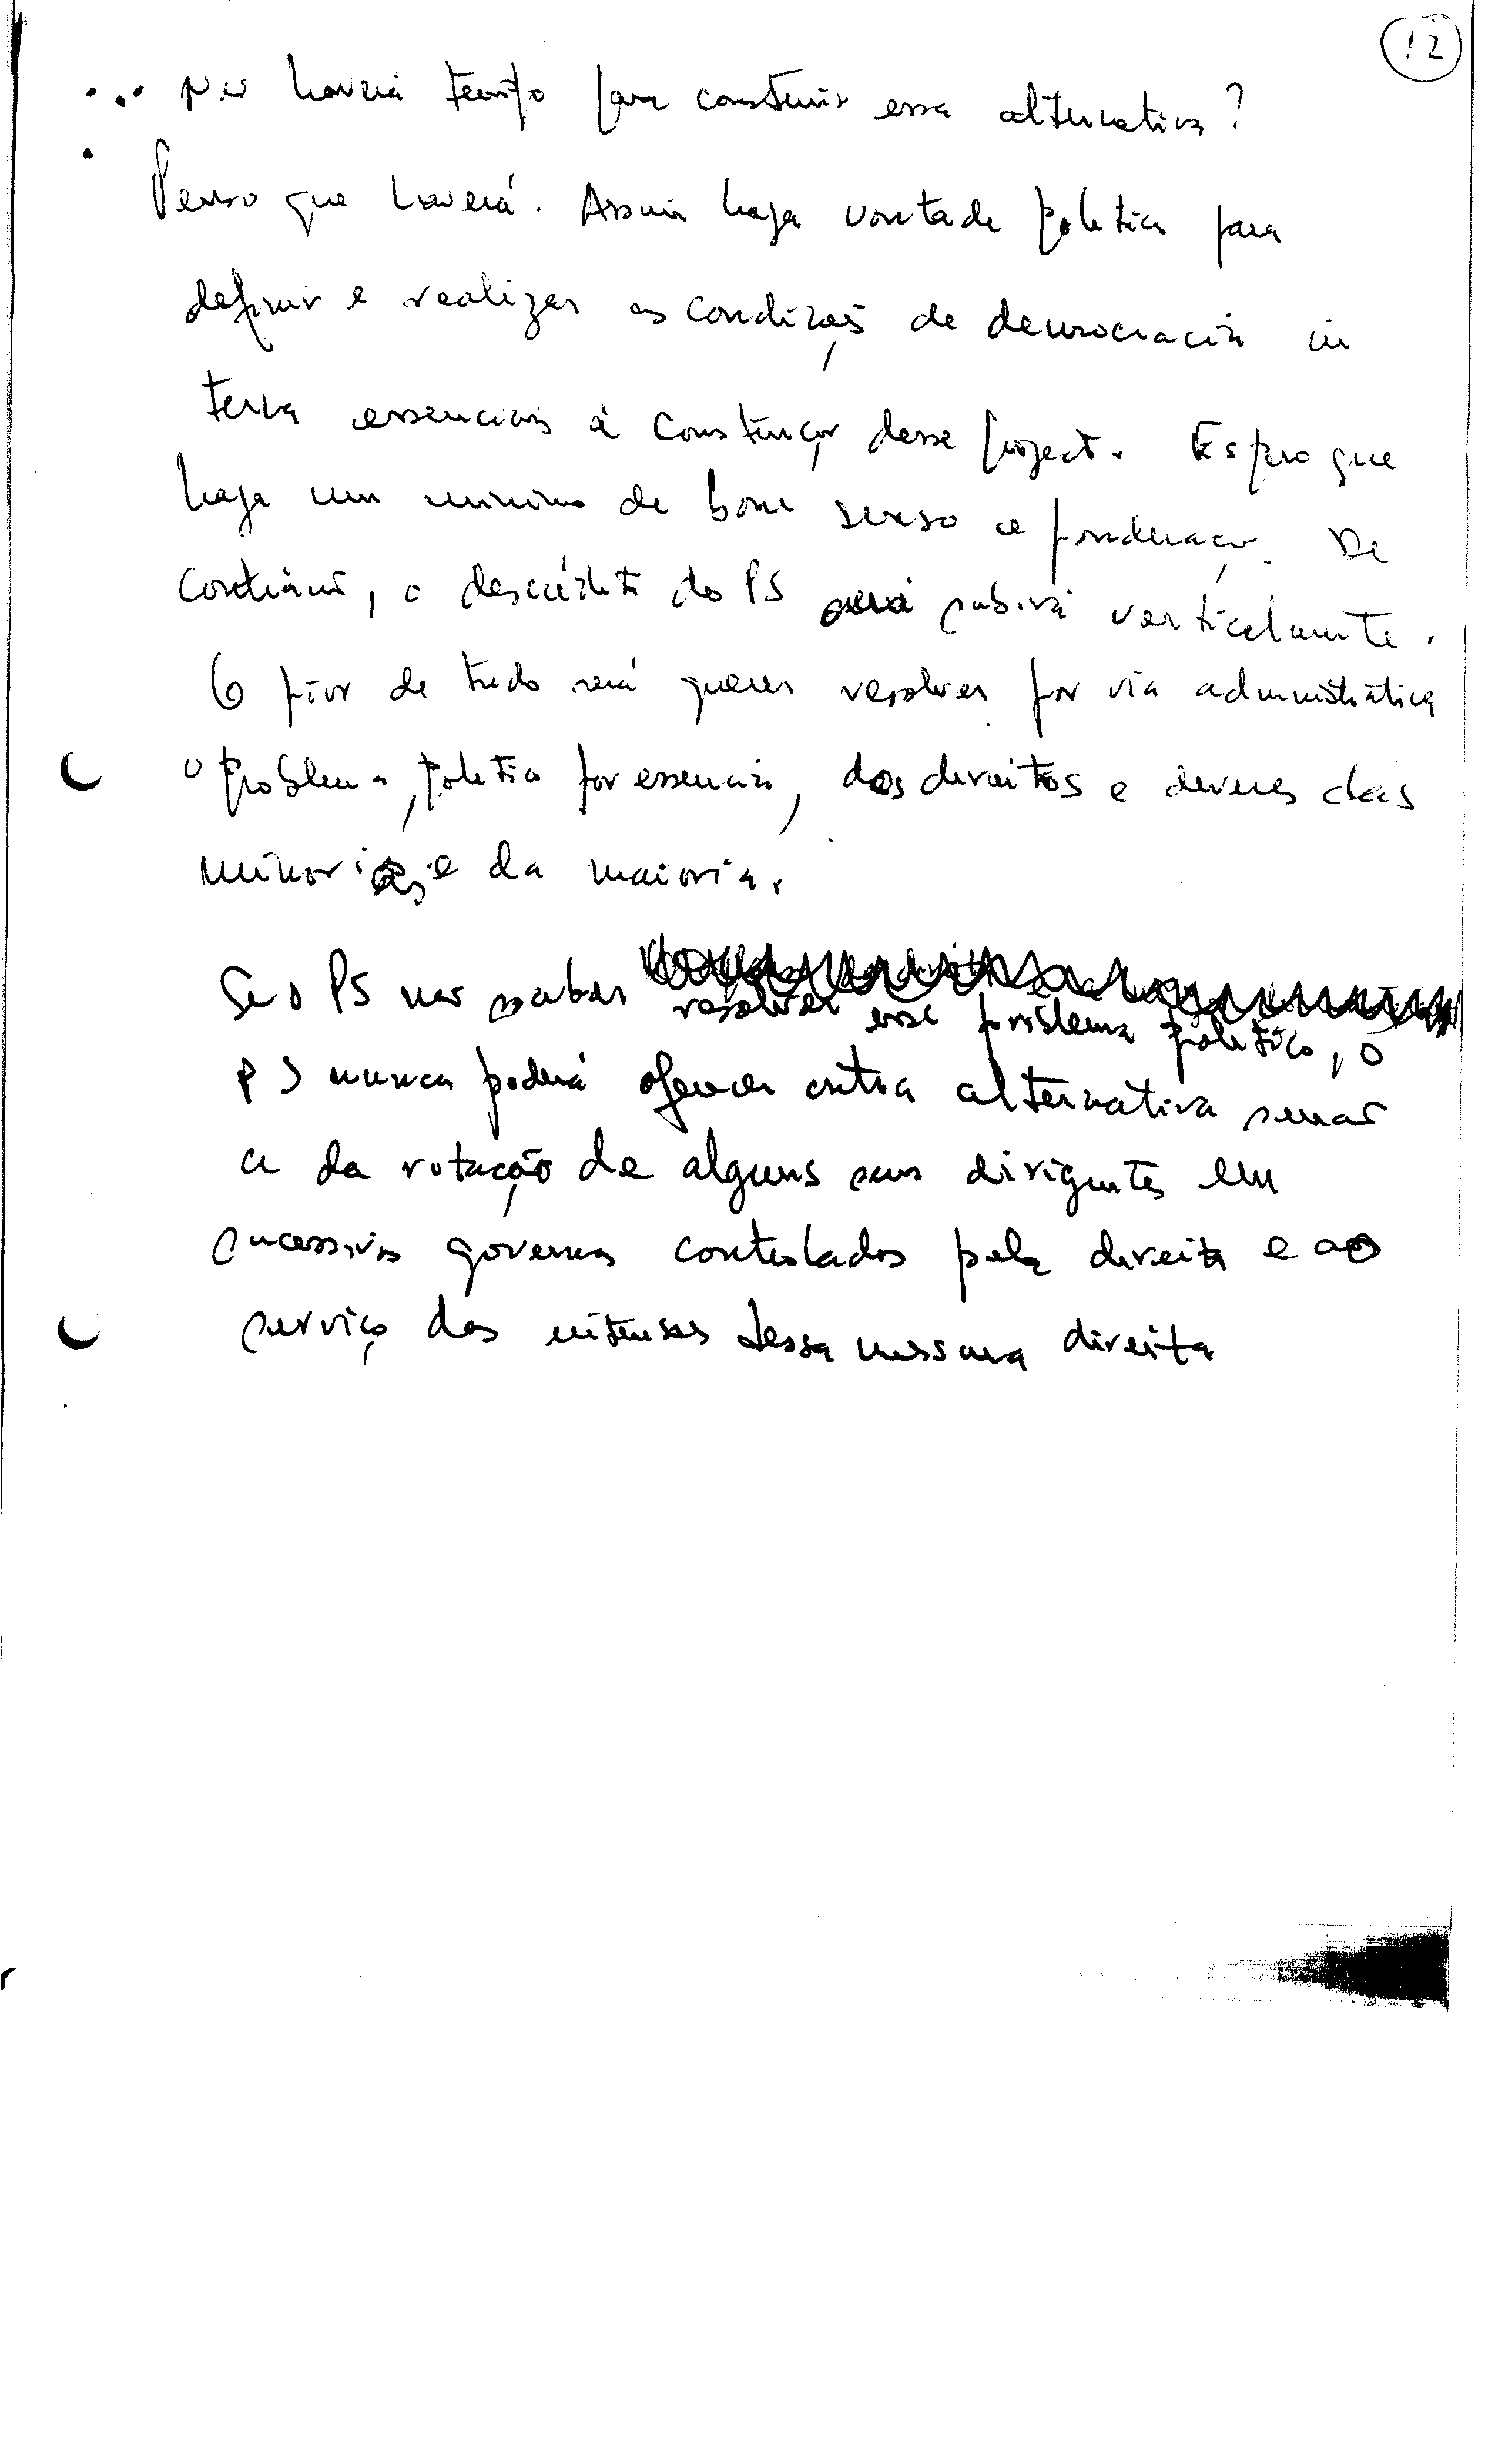 12
... Não haverá tempo para construir essa alternativa?
Penso que haverá. Assim haja vontade política para
definir e realizar as condições de democracia in
terna essenciais à construção desse projecto. Espero que
haja um mínimo de bom senso e ponderação. De
contrário, o descrédito do PS subirá verticalmente.
O pior de tudo será querer resolver por via administrativa
o problema, político por essência, dos direitos e deveres das
minorias e da maioria.
Se o PS não souber
resolver esse problema político, o
PS nunca poderá oferecer outra alternativa senão
a da rotação de alguns seus dirigentes em
sucessivos governos controlados pela direita e ao
serviço dos interesses dessa mesma direita